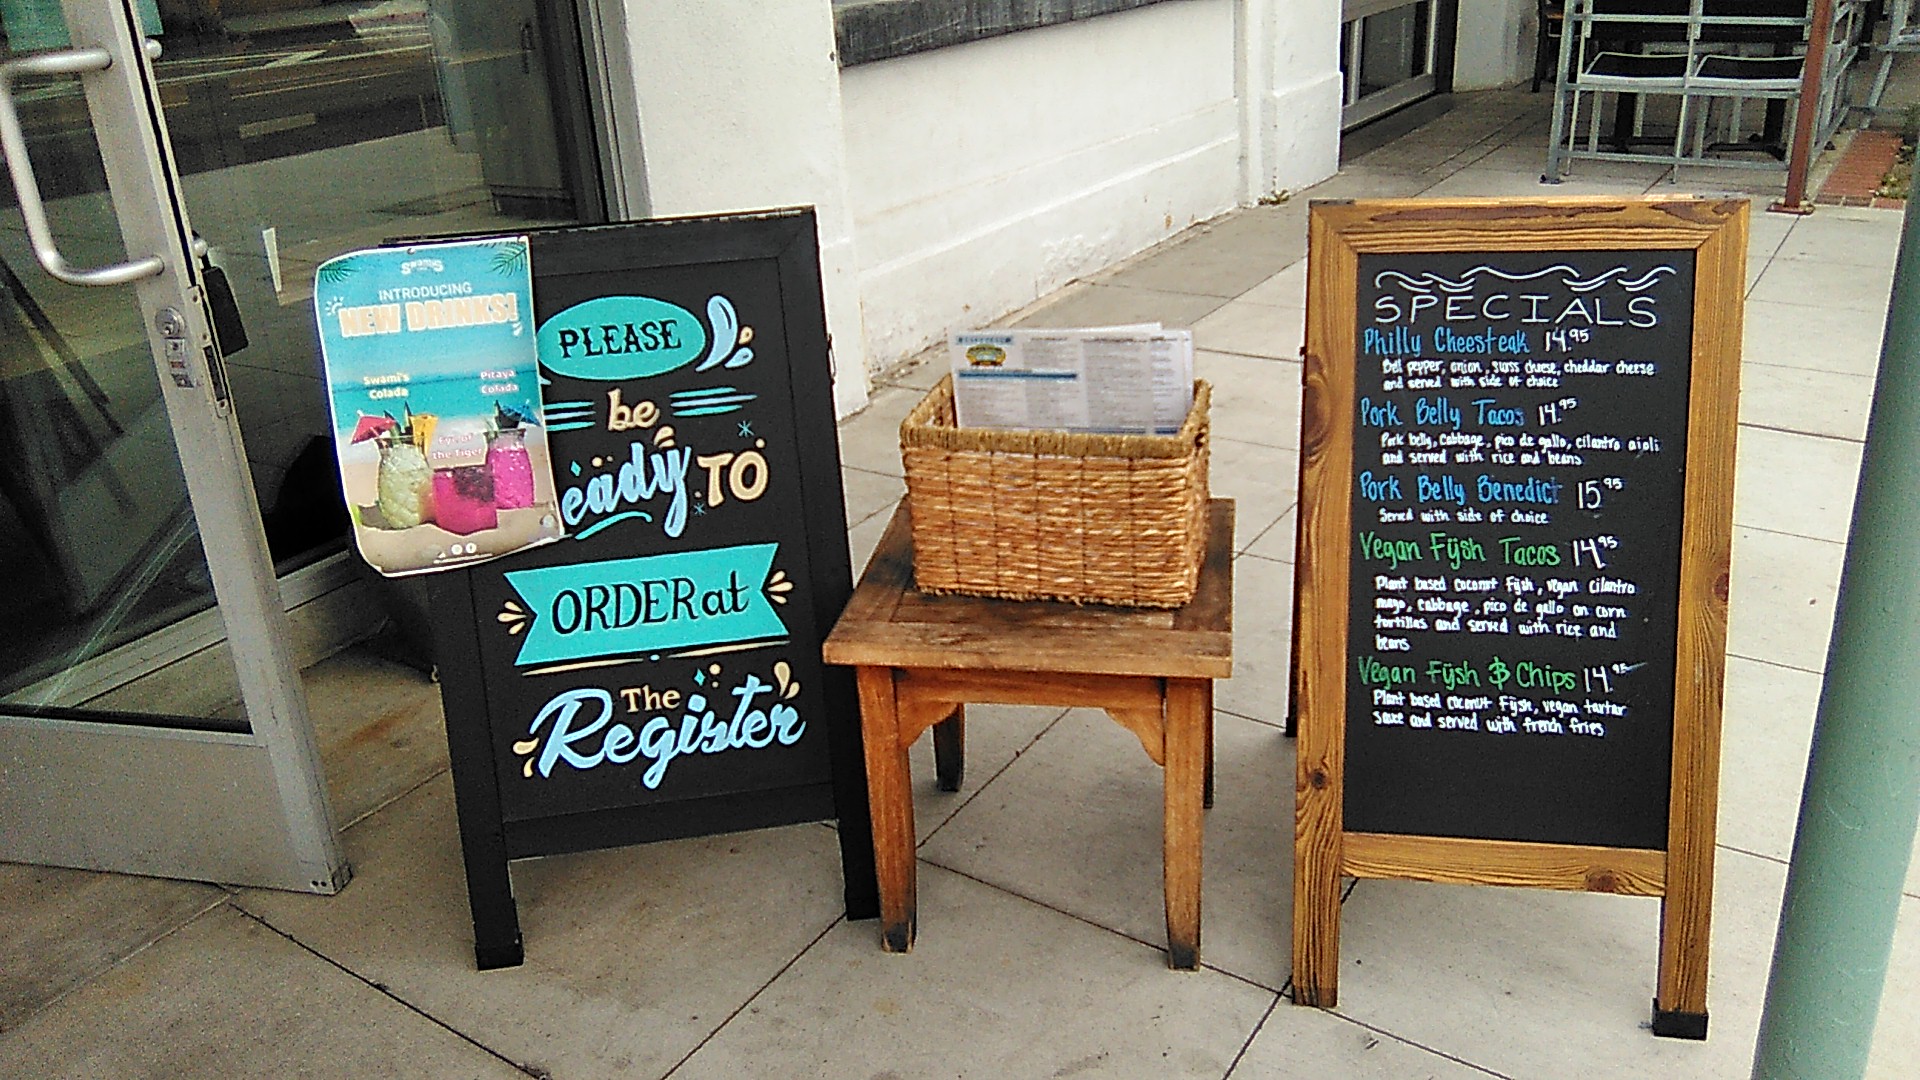 Swami's
INTRODUCING
NEW DRINKS!
Swami's
Colada
Pitaya
Colada
the Tiger
PLEASE
be
eady TO
ORDER at
The
Register
SPECIALS
Philly Cheesteak 14.95
Bell pepper, onion, swiss cheese, cheddar cheese
and served with side of choice
Pork Belly Tacos 14.95
Pork belly, cabbage, pico de gallo, cilantro aioli
and served with rice and beans
Pork Belly Benedict 15 95
Served with side of choice
Vegan Fÿsh Tacos 14.95
Plant based coconut Fÿsh, vegan cilantro
mayo, cabbage, pico de gallo on corn
tortillas and served with rice and
beans
Vegan Fÿsh & Chips 14.95
Plant based coconut Fÿsh, vegan tartar
sauce and served with french fries